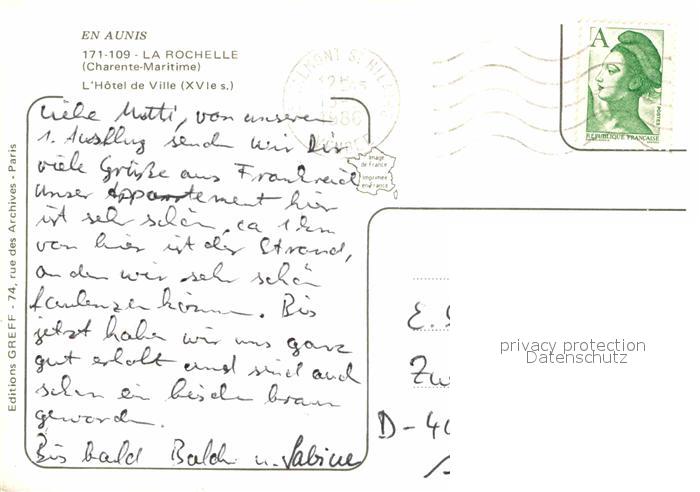 EN AUNIS
171-109 - LA ROCHELLE
(Charente-Maritime)
L'Hôtel de Ville (XVIe s.)
Liebe Mutti, von unserem
1. Ausflug senden wir Dir
viele Grüße aus Frankreich
Unser Appartement hier
ist sehr schön, ca 1 km
von hier ist der Strand,
an dem wir sehr schön
faulenzen können. Bis
jetzt haben wir uns ganz
gut erholt und sind auch
schon ein bischen braun
geworden.
Bis bald u. Sabine
Editions GREFF - 74, rue des Archives - Paris
Image
de France
Imprimée
en France
ST HILAIRE
1986
A
POSTES
REPUBLIQUE FRANÇAISE
E.
D-
privacy protection
Datenschutz